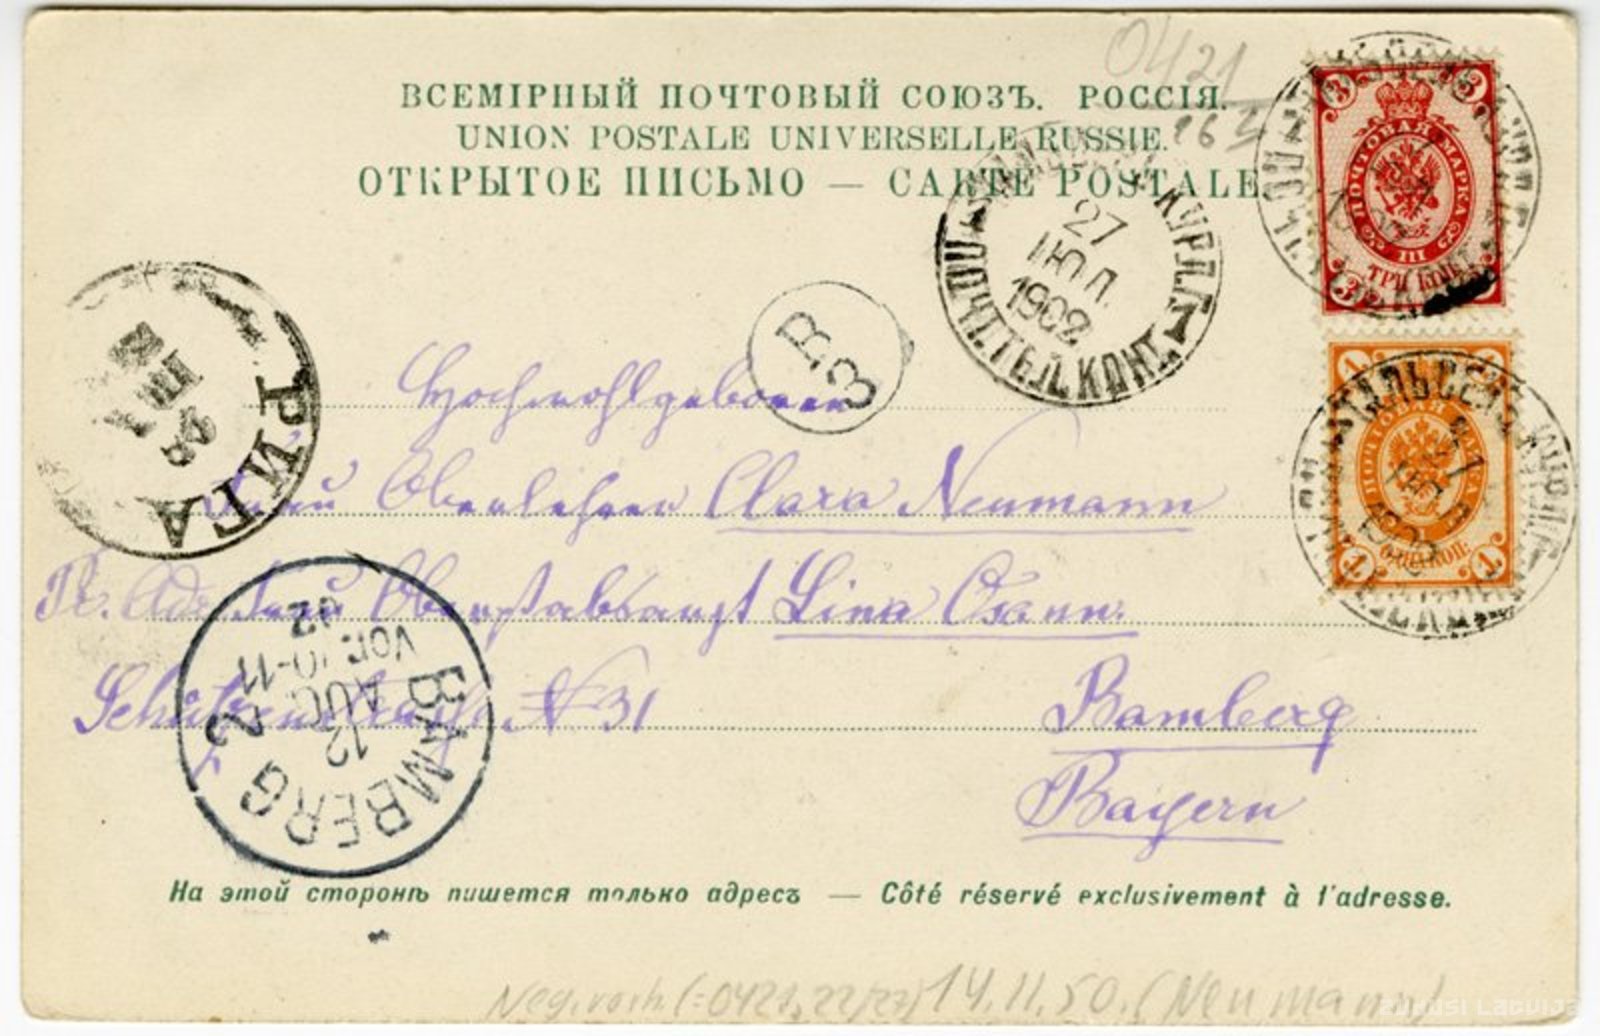 0421
ВСЕМІРНЫЙ ПОЧТОВЫЙ СОЮЗЪ. РОССІЯ.
UNION POSTALE UNIVERSELLE RUSSIE.
ОТКРЫТОЕ ПИСЬМО — CARTE POSTALE
3 3
ПОЧТОВАЯ МАРКА
III
ТРИ КОП.
3
1
ПОЧТОВАЯ МАРКА
ОДНА КОП.
1 1
КУРЛ.
27
ІЮЛ.
1902
ПОЧТ. ТЕЛ. КОНТ.
РИГА
28
VII
В.
3
Hochwohlgeboren
Frau Oberlehrer Clara Neumann
Pr. Adr. Frau Oberstabsarzt Lina Osann.
Schützenstraße N 31 Bamberg
Bayern
BAMBERG 2
12
AUG
VOR. 10-11
02
На этой сторонѣ пишется только адресъ — Côté réservé exclusivement à l'adresse.
Neg. vorh. (=0421,22/27) 14.11.50. (Neumann)
ZUDUSI LATVIJA